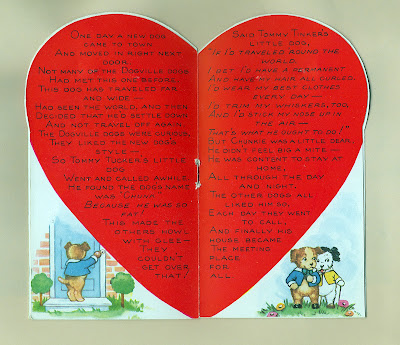 ONE DAY A NEW DOG
CAME TO TOWN
AND MOVED IN RIGHT NEXT
DOOR.
NOT MANY OF THE DOGVILLE DOGS
HAD MET THIS ONE BEFORE.
THIS DOG HAS TRAVELED FAR
AND WIDE —
HAD SEEN THE WORLD, AND THEN
DECIDED THAT HE'D SETTLE DOWN
AND NOT TRAVEL OFF AGAIN.
THE DOGVILLE DOGS WERE CURIOUS.
THEY LIKED THE NEW DOG'S
STYLE —
SO TOMMY TUCKER'S LITTLE
DOG
WENT AND CALLED AWHILE.
HE FOUND THE DOG'S NAME
WAS "CHUNK"
BECAUSE HE WAS SO
FAT!
THIS MADE THE
OTHERS HOWL
WITH GLEE —
THEY
COULDN'T
GET OVER
THAT!
SAID TOMMY TINKER'S
LITTLE DOG,
"IF I'D TRAVELED 'ROUND THE
WORLD
I BET I'D HAVE A PERMANENT
AND HAVE MY HAIR ALL CURLED.
I'D WEAR MY BEST CLOTHES
EVERY DAY —
I'D TRIM MY WHISKERS, TOO,
AND I'D STICK MY NOSE UP IN
THE AIR —
THAT'S WHAT HE OUGHT TO DO!"
BUT CHUNKIE WAS A LITTLE DEAR,
HE DIDN'T FEEL BIG A MITE —
HE WAS CONTENT TO STAY AT
HOME,
ALL THROUGH THE DAY
AND NIGHT.
THE OTHER DOGS ALL
LIKED HIM SO,
EACH DAY THEY WENT
TO CALL,
AND FINALLY HIS
HOUSE BECAME
THE MEETING
PLACE
FOR
ALL